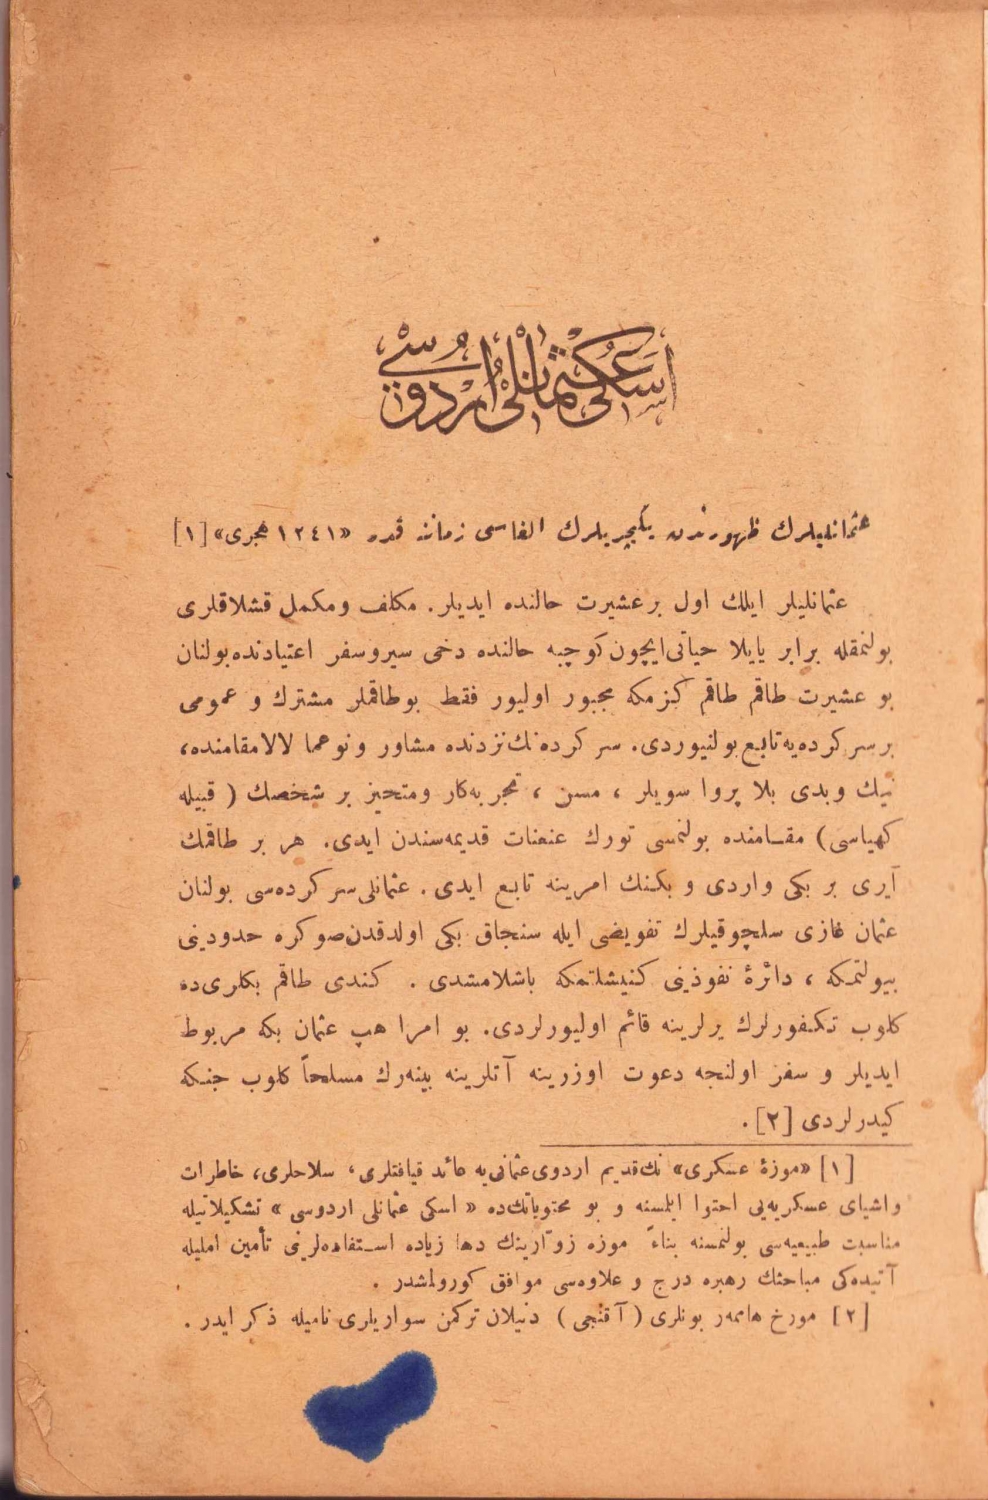 اسكی عثمانلی اردوسی
عثمانلیلرك ظهورندن یكیچریلرك الغاسی زماننه قدر «١٢٤١ هجری» [١]
عثمانلیلر ایلك اول بر عشیرت حالنده ایدیلر. مكلف ومكمل قشلاقلری
بولنمقله برابر یایلا حیاتی ایچون كوچبه حالنده دخی سیر وسفر اعتیادنده بولنان
بو عشیرت طاقم طاقم كزمكه مجبور اولیور فقط بوطاقملر مشترك و عمومی
بر سر كرده‌یه تابع بولنیوردی. سر كرده‌نك نزدنده مشاور ونوعما لالا مقامنده،
نیك وبدی بلا پروا سویلر ، مسن ، تجربه‌كار ومتحیز بر شخصك ( قبیله
كهیاسی) مقامنده بولنمسی تورك عنعنات قدیمه‌سندن ایدی. هر بر طاقمك
آیری بر بكی واردی و بكنك امرینه تابع ایدی . عثمانلی سر كرده‌سی بولنان
عثمان غازی سلجوقیلرك تفویضی ایله سنجاق بكی اولدقدن صوكره حدودینی
بیولتمكه ، دائرۀ نفوذینی كنیشلتمكه باشلامشدی . كندی طاقم بكلری‌ده
كلوب تكفورلرك یرلرینه قائم اولیورلردی. بو امرا هپ عثمان بكه مربوط
ایدیلر و سفر اولنجه دعوت اوزرینه آتلرینه بینه‌رك مسلحاً كلوب جنكه
كیدرلردی [٢] .
[١] «موزۀ عسكری» نك قدیم اردوی عثمانی‌یه عائد قیافتلری، سلاحلری، خاطرات
واشیای عسكریه‌یی احتوا ایلمسنه و بو محتویاتك‌ده « اسكی عثمانلی اردوسی » تشكیلاتیله
مناسبت طبیعیه‌سی بولنمسنه بناءً موزه زوّارینك دها زیاده استفاده‌لرینی تأمین املیله
آتیده‌كی مباحثك رهبره درج و علاوه‌سی موافق كورولمشدر .
[٢] مورخ هاممر بونلری ( آقنجی ) دنیلان تركمن سواریلری نامیله ذكر ایدر .